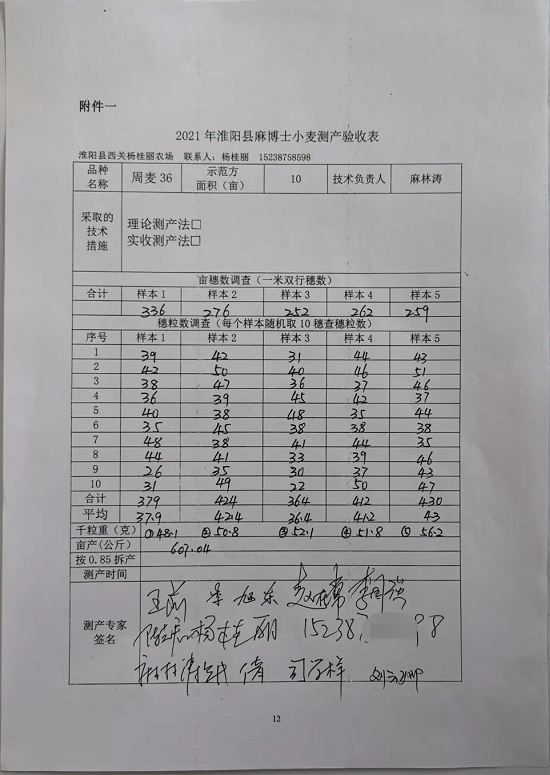 附件一
2021年淮阳县麻博士小麦测产验收表
淮阳县西关杨桂丽农场 联系人：杨桂丽 15238758598
品种名称 周麦36 示范方面积（亩） 10 技术负责人 麻林涛
采取的技术措施
理论测产法□
实收测产法□
亩穗数调查（一米双行穗数）
合计 样本1 样本2 样本3 样本4 样本5
336 276 252 262 259
穗粒数调查（每个样本随机取10穗查穗粒数）
序号 样本1 样本2 样本3 样本4 样本5
1 39 42 31 44 43
2 42 50 40 46 51
3 38 47 36 37 46
4 36 39 45 42 37
5 40 38 48 35 44
6 35 45 38 38 38
7 48 38 41 44 35
8 44 41 33 39 46
9 26 35 30 37 43
10 31 49 22 50 47
合计 379 424 364 412 430
平均 37.9 42.4 36.4 41.2 43
千粒重（克） ①48.1 ②50.8 ③52.1 ④51.8 ⑤56.2
亩产(公斤) 607.04
按0.85拆产
测产时间
测产专家签名
李旭东
杨桂丽 15238
12